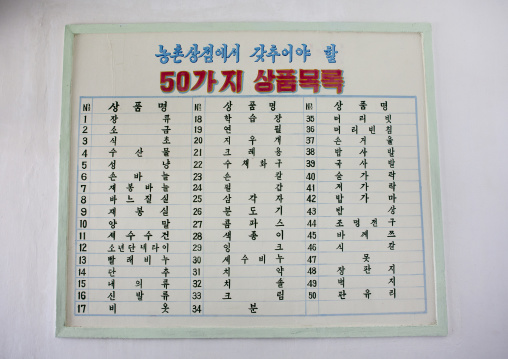 농촌상점에서 갖추어야 할
50가지 상품목록
№ 상품명
1 장류
2 소금
3 식초
4 수산물
5 성냥
6 손바늘
7 재봉바늘
8 바느질실
9 재봉실
10 양말
11 세수수건
12 소년단넥타이
13 빨래비누
14 단추
15 내의류
16 신발류
17 비옷
№ 상품명
18 학습장
19 연필
20 지우개
21 크레용
22 수채화구
23 손칼
24 필갑
25 삼각자
26 분도기
27 콤파스
28 색종이
29 잉크
30 세수비누
31 치약
32 치솔
33 크림
34 분
№ 상품명
35 머리빗
36 머리빈침
37 손거울
38 밥사발
39 국사발
40 숟가락
41 저가락
42 밥가마
43 밥상
44 조명전구
45 바께쯔
46 식칼
47 못
48 장판지
49 벽지
50 판유리